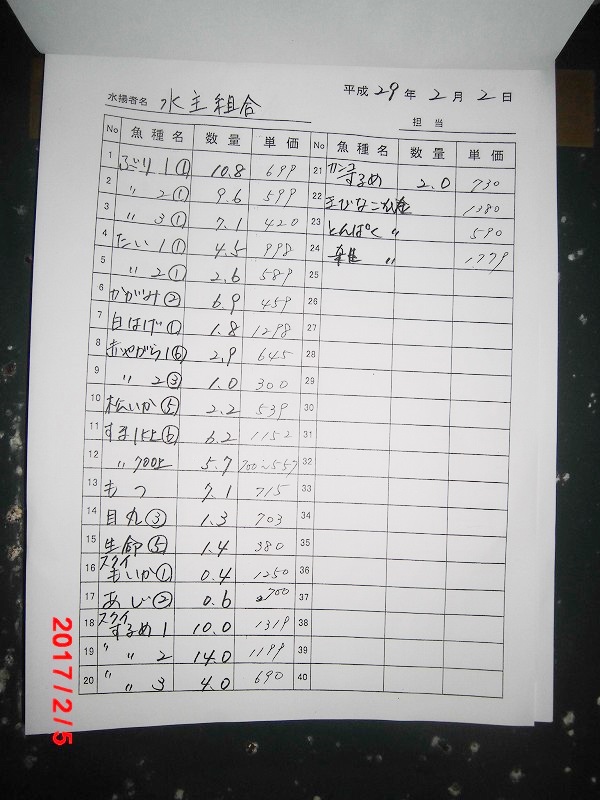 平成 29 年 2 月 2 日
水揚者名 水主組合
担当
No 魚種名 数量 単価
1 ぶり 1 ① 10.8 699
2 〃 2 ① 9.6 599
3 〃 3 ① 7.1 420
4 たい 1 ① 4.5 998
5 〃 2 ① 2.6 589
6 かがみ ② 6.9 459
7 白はげ ① 1.8 1298
8 赤やがら 1 ⑥ 2.9 645
9 〃 2 ③ 1.0 300
10 松いか ⑤ 2.2 539
11 すま 1上 ⑥ 6.2 1152
12 〃 700上 5.7 700〜557
13 もつ 7.1 715
14 目丸 ③ 1.3 703
15 生命 ⑤ 1.4 380
16 スクイ もいか ① 0.4 1250
17 あじ ② 0.6 700
18 スクイ するめ 1 10.0 1319
19 〃 〃 2 14.0 1199
20 〃 〃 3 4.0 690
No 魚種名 数量 単価
21 するめ 2.0 730
22 きびなご 1380
23 とんぱく 〃 590
24 〃 1779
25
26
27
28
29
30
31
32
33
34
35
36
37
38
39
40
2017/2/5